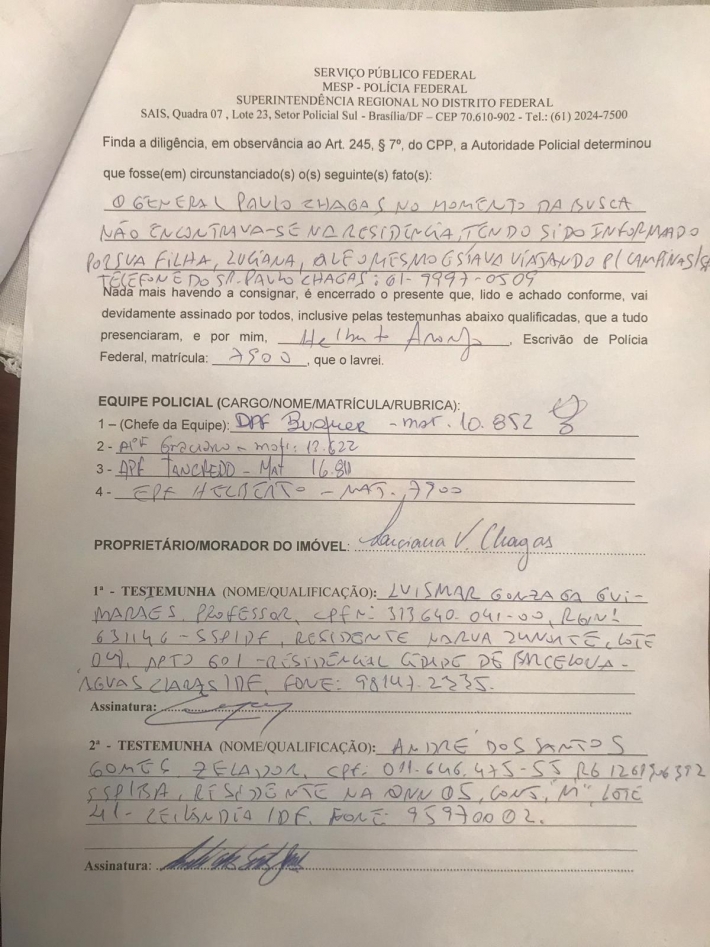 SERVIÇO PÚBLICO FEDERAL
MESP - POLÍCIA FEDERAL
SUPERINTENDÊNCIA REGIONAL NO DISTRITO FEDERAL
SAIS, Quadra 07 , Lote 23, Setor Policial Sul - Brasília/DF – CEP 70.610-902 - Tel.: (61) 2024-7500
Finda a diligência, em observância ao Art. 245, § 7º, do CPP, a Autoridade Policial determinou
que fosse(em) circunstanciado(s) o(s) seguinte(s) fato(s):
O GENERAL PAULO CHAGAS NO MOMENTO DA BUSCA
NÃO ENCONTRAVA-SE NA RESIDÊNCIA, TENDO SIDO INFORMADO
POR SUA FILHA, LUCIANA, QUE O MESMO ESTAVA VIAJANDO P/ CAMPINAS/SP
TELEFONE DO SR. PAULO CHAGAS: 61-9997-0509
Nada mais havendo a consignar, é encerrado o presente que, lido e achado conforme, vai
devidamente assinado por todos, inclusive pelas testemunhas abaixo qualificadas, que a tudo
presenciaram, e por mim, Helberto, Escrivão de Polícia
Federal, matrícula: 7900, que o lavrei.
EQUIPE POLICIAL (CARGO/NOME/MATRÍCULA/RUBRICA):
1 – (Chefe da Equipe): DPF - mat. 10.852
2 - APF Graciano - mat: 12.622
3 - APF TANCREDO - Mat
4 - EPF HELBERTO - MAT. 7900
PROPRIETÁRIO/MORADOR DO IMÓVEL: Luciana V. Chagas
1ª - TESTEMUNHA (NOME/QUALIFICAÇÃO): LUISMAR GONZAGA GUI-
MARAES, PROFESSOR, CPF Nº: 313640.041-00, RG Nº:
631146-SSP/DF, RESIDENTE NA RUA, LOTE
04, APTO 601 - RESIDENCIAL CIDADE DE BARCELONA -
ÁGUAS CLARAS/DF, FONE: 98147.2335.
Assinatura:
2ª - TESTEMUNHA (NOME/QUALIFICAÇÃO): ANDRÉ DOS SANTOS
GOMES, ZELADOR, CPF: 011.646.475-55, RG
SSP/BA, RESIDENTE NA QNN 05, CONJ. "M", LOTE
41 - CEILÂNDIA/DF. FONE: 95970002.
Assinatura: